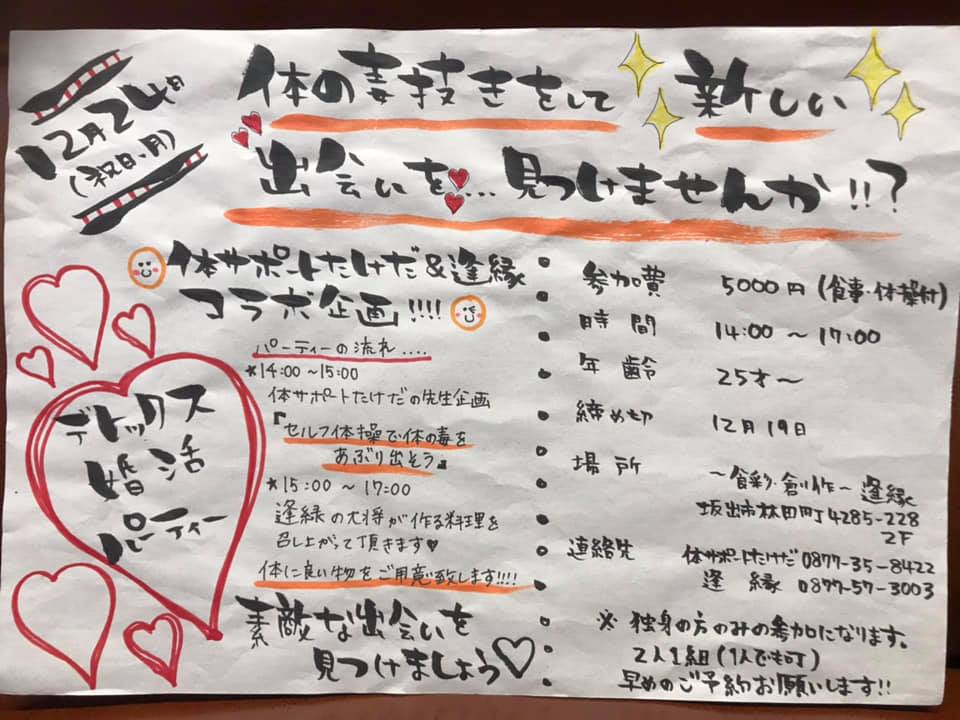 12月24日
(祝日、月)
体の毒抜きをして 新しい
出会いを…見つけませんか!!?
体サポートたけだ&逢縁
コラボ企画!!!!
パーティーの流れ....
*14:00 ~15:00
体サポートたけだの先生企画
『セルフ体操で体の毒を
あぶり出そう』
*15:00 ~ 17:00
逢縁の大将が作る料理を
召し上がって頂きます♥
体に良い物をご用意致します!!!!
素敵な出会いを
見つけましょう♡
デトックス
婚活
パーティー
参加費 5000円(食事・体操付)
時間 14:00 ~ 17:00
年齢 25才~
締め切 12月19日
場所 ~食彩・創作~ 逢縁
坂出市林田町4285-228
2F
連絡先 体サポートたけだ 0877-35-8422
逢縁 0877-57-3003
※ 独身の方のみの参加になります。
2人1組(1人でも可)
早めのご予約お願いします!!